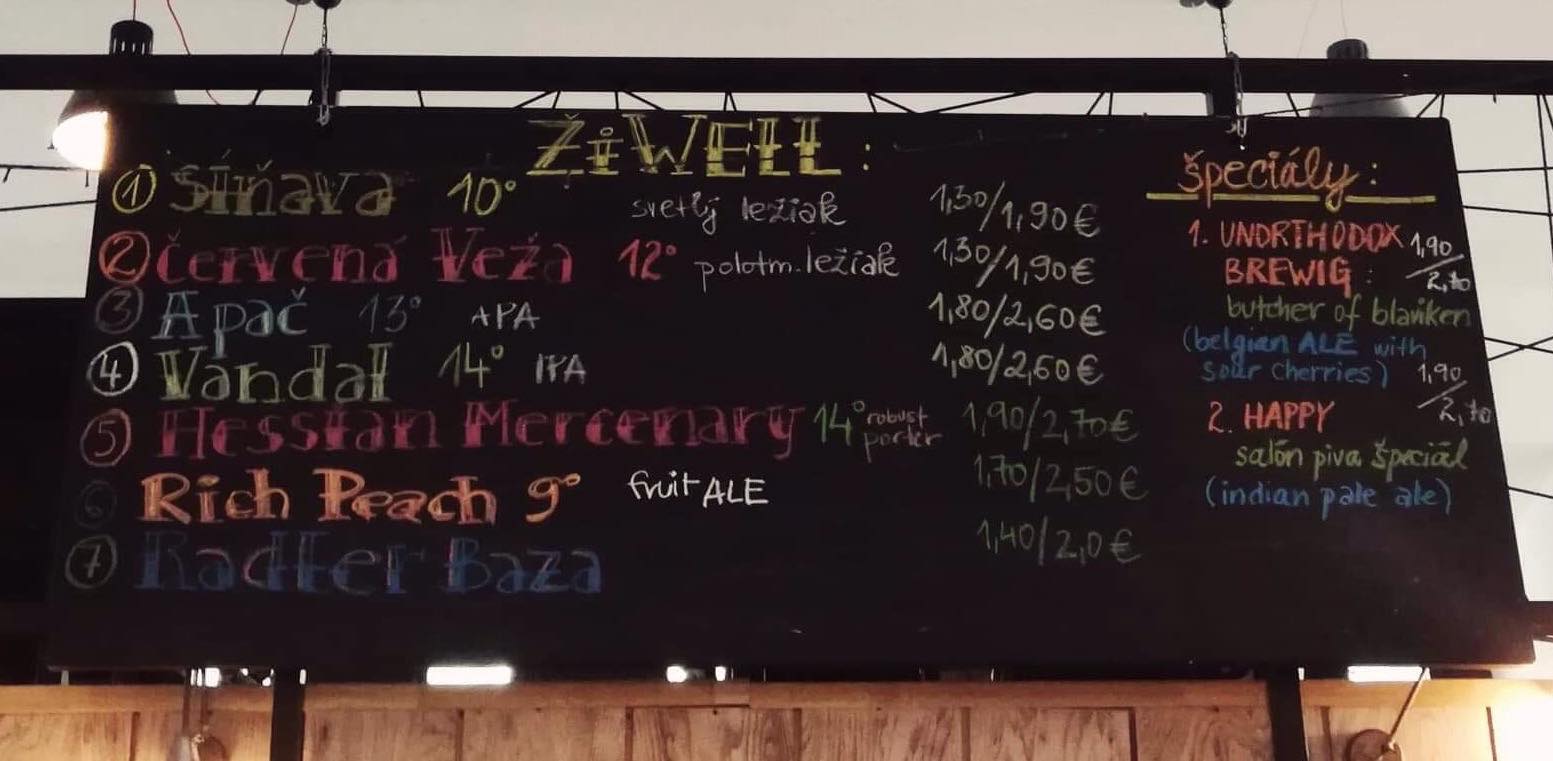 ŽiWELL:
1 Síňava 10° svetlý ležiak 1,30/1,90€
2 Červená Veža 12° polotm. ležiak 1,30/1,90€
3 Apač 13° APA 1,80/2,60€
4 Vandal 14° IPA 1,80/2,60€
5 Hessian Mercenary 14° robust porter 1,90/2,70€
6 Rich Peach 9° fruit ALE 1,70/2,50€
7 Radler Baza 1,40/2,0€
špeciály:
1. UNORTHODOX 1,90/2,70
BREWIG:
butcher of blaviken
(belgian ALE with
sour cherries)
2. HAPPY 1,90/2,70
salón piva špeciál
(indian pale ale)